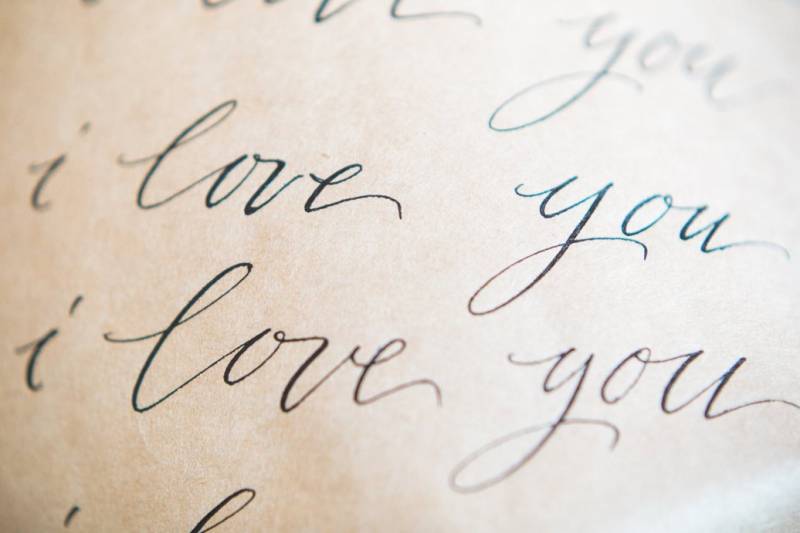 you
i love you
i love you
i